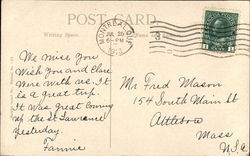 POST CARD
Writing Space.
MONTREAL QUE
JUL 25
6-PM
We miss you
Wish you and Clare
were with us. It
is a great trip.
It was great coming
up the St Lawrence
yesterday.
Fannie
Mr Fred Mason
154 South Main St
Attleboro
Mass